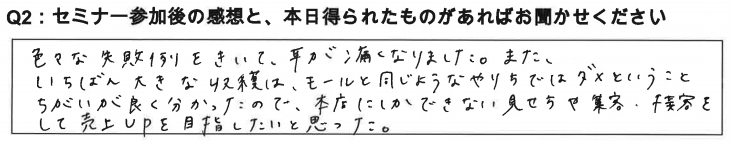 Q2：セミナー参加後の感想と、本日得られたものがあればお聞かせください
色々な失敗例をきいて、耳が痛くなりました。また、
いちばん大きな収穫は、モールと同じようなやり方ではダメということ
ちがいが良く分かったので、本店にしかできない見せ方や集客・接客を
して売上UPを目指したいと思った。